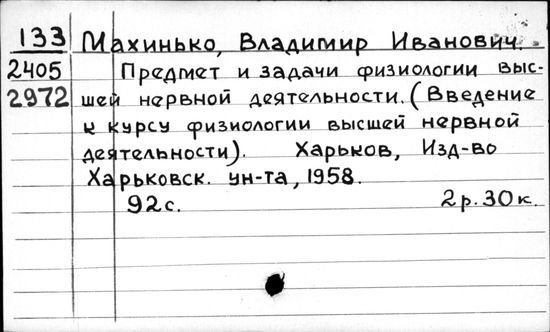 133 Махинько, Владимир Иванович.
2405 Предмет и задачи физиологии выс-
2972 шей нервной деятельности. (Введение
к курсу физиологии высшей нервной
деятельности). Харьков, Изд-во
Харьковск. ун-та, 1958.
92с. 2р.30к.